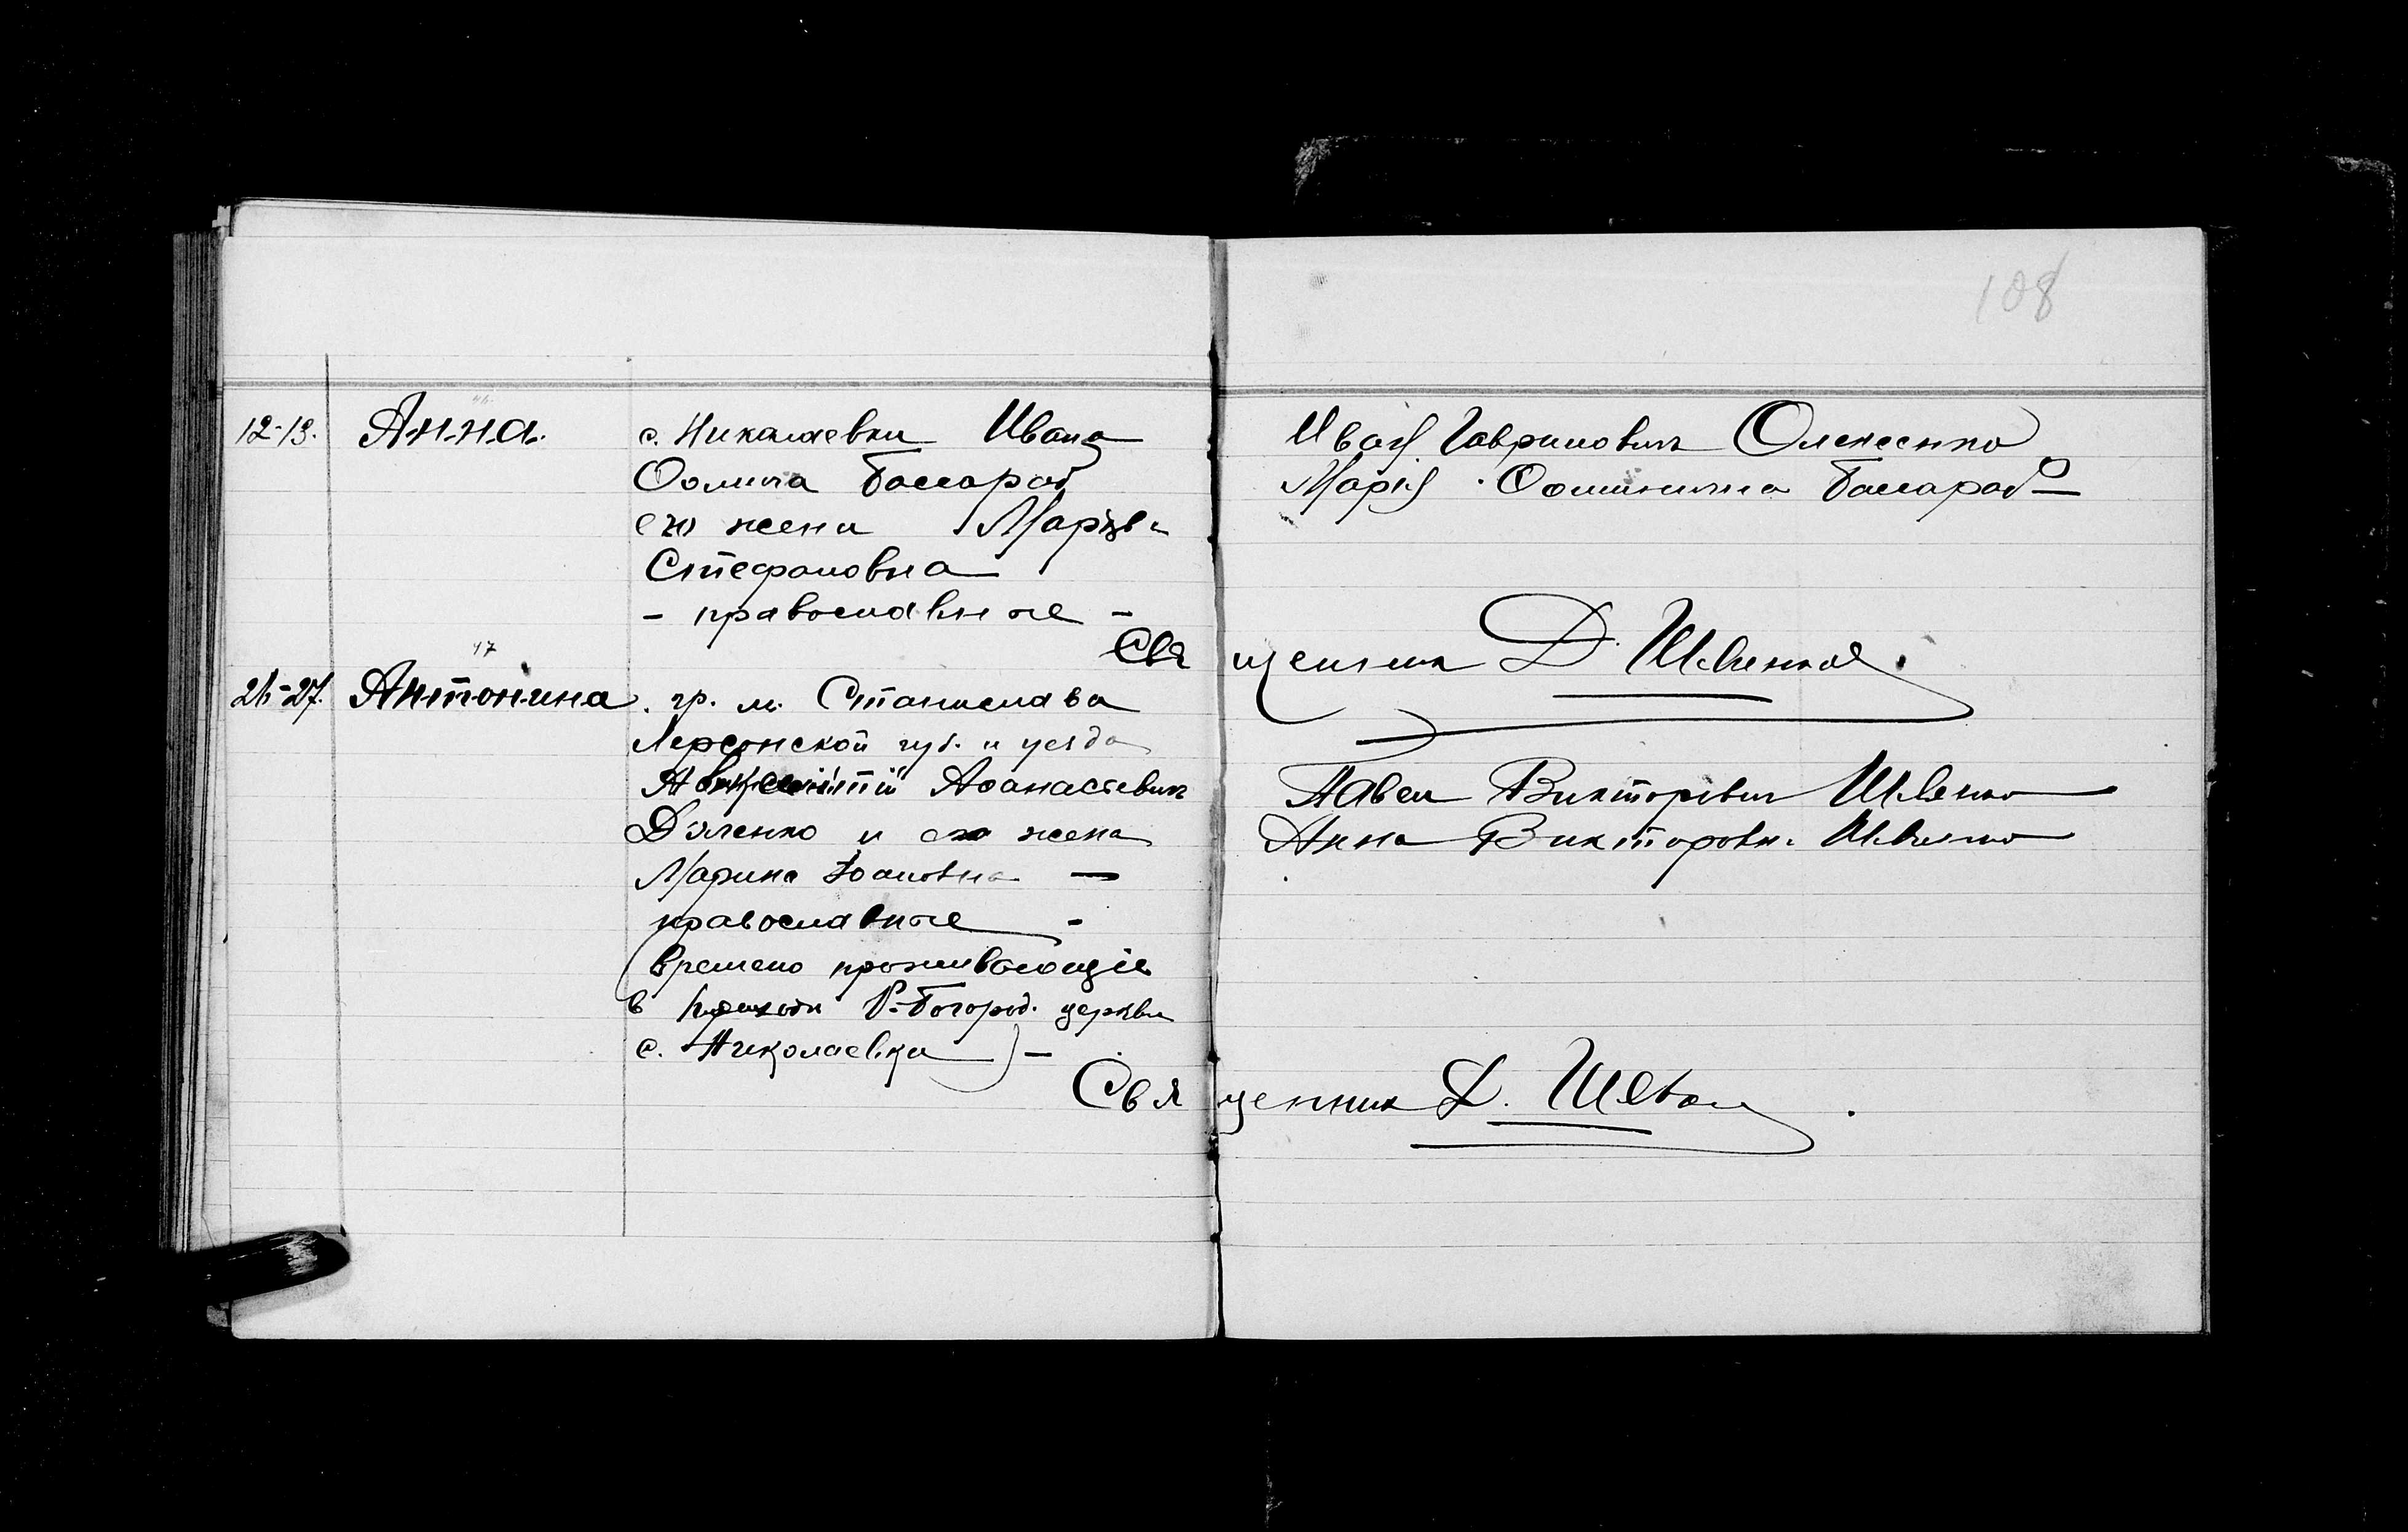 108
46.
12-13. Анна. с. Николаевки Ивана
Фомича Бассараб
его жена Марія
Стефановна
- православные -
Иван Гаврилович Олексенко
Марія Фоминична Бассараб
Священник Д. Шевченко
47
26-27. Антонина. гр. м. Станислава
Херсонской губ. и уезда
Авксентій Афанасьевич
Дяченко и его жена
Марина Іоановна —
православные -
(временно проживающіе
в приходе Р-Богород. церкви
с. Николаевки) -
Павел Викторович Шевченко
Анна Викторовн.
Священник Д.